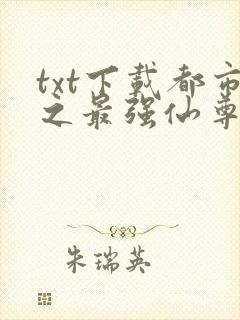 txt下载都市
之最强仙尊
朱瑞英